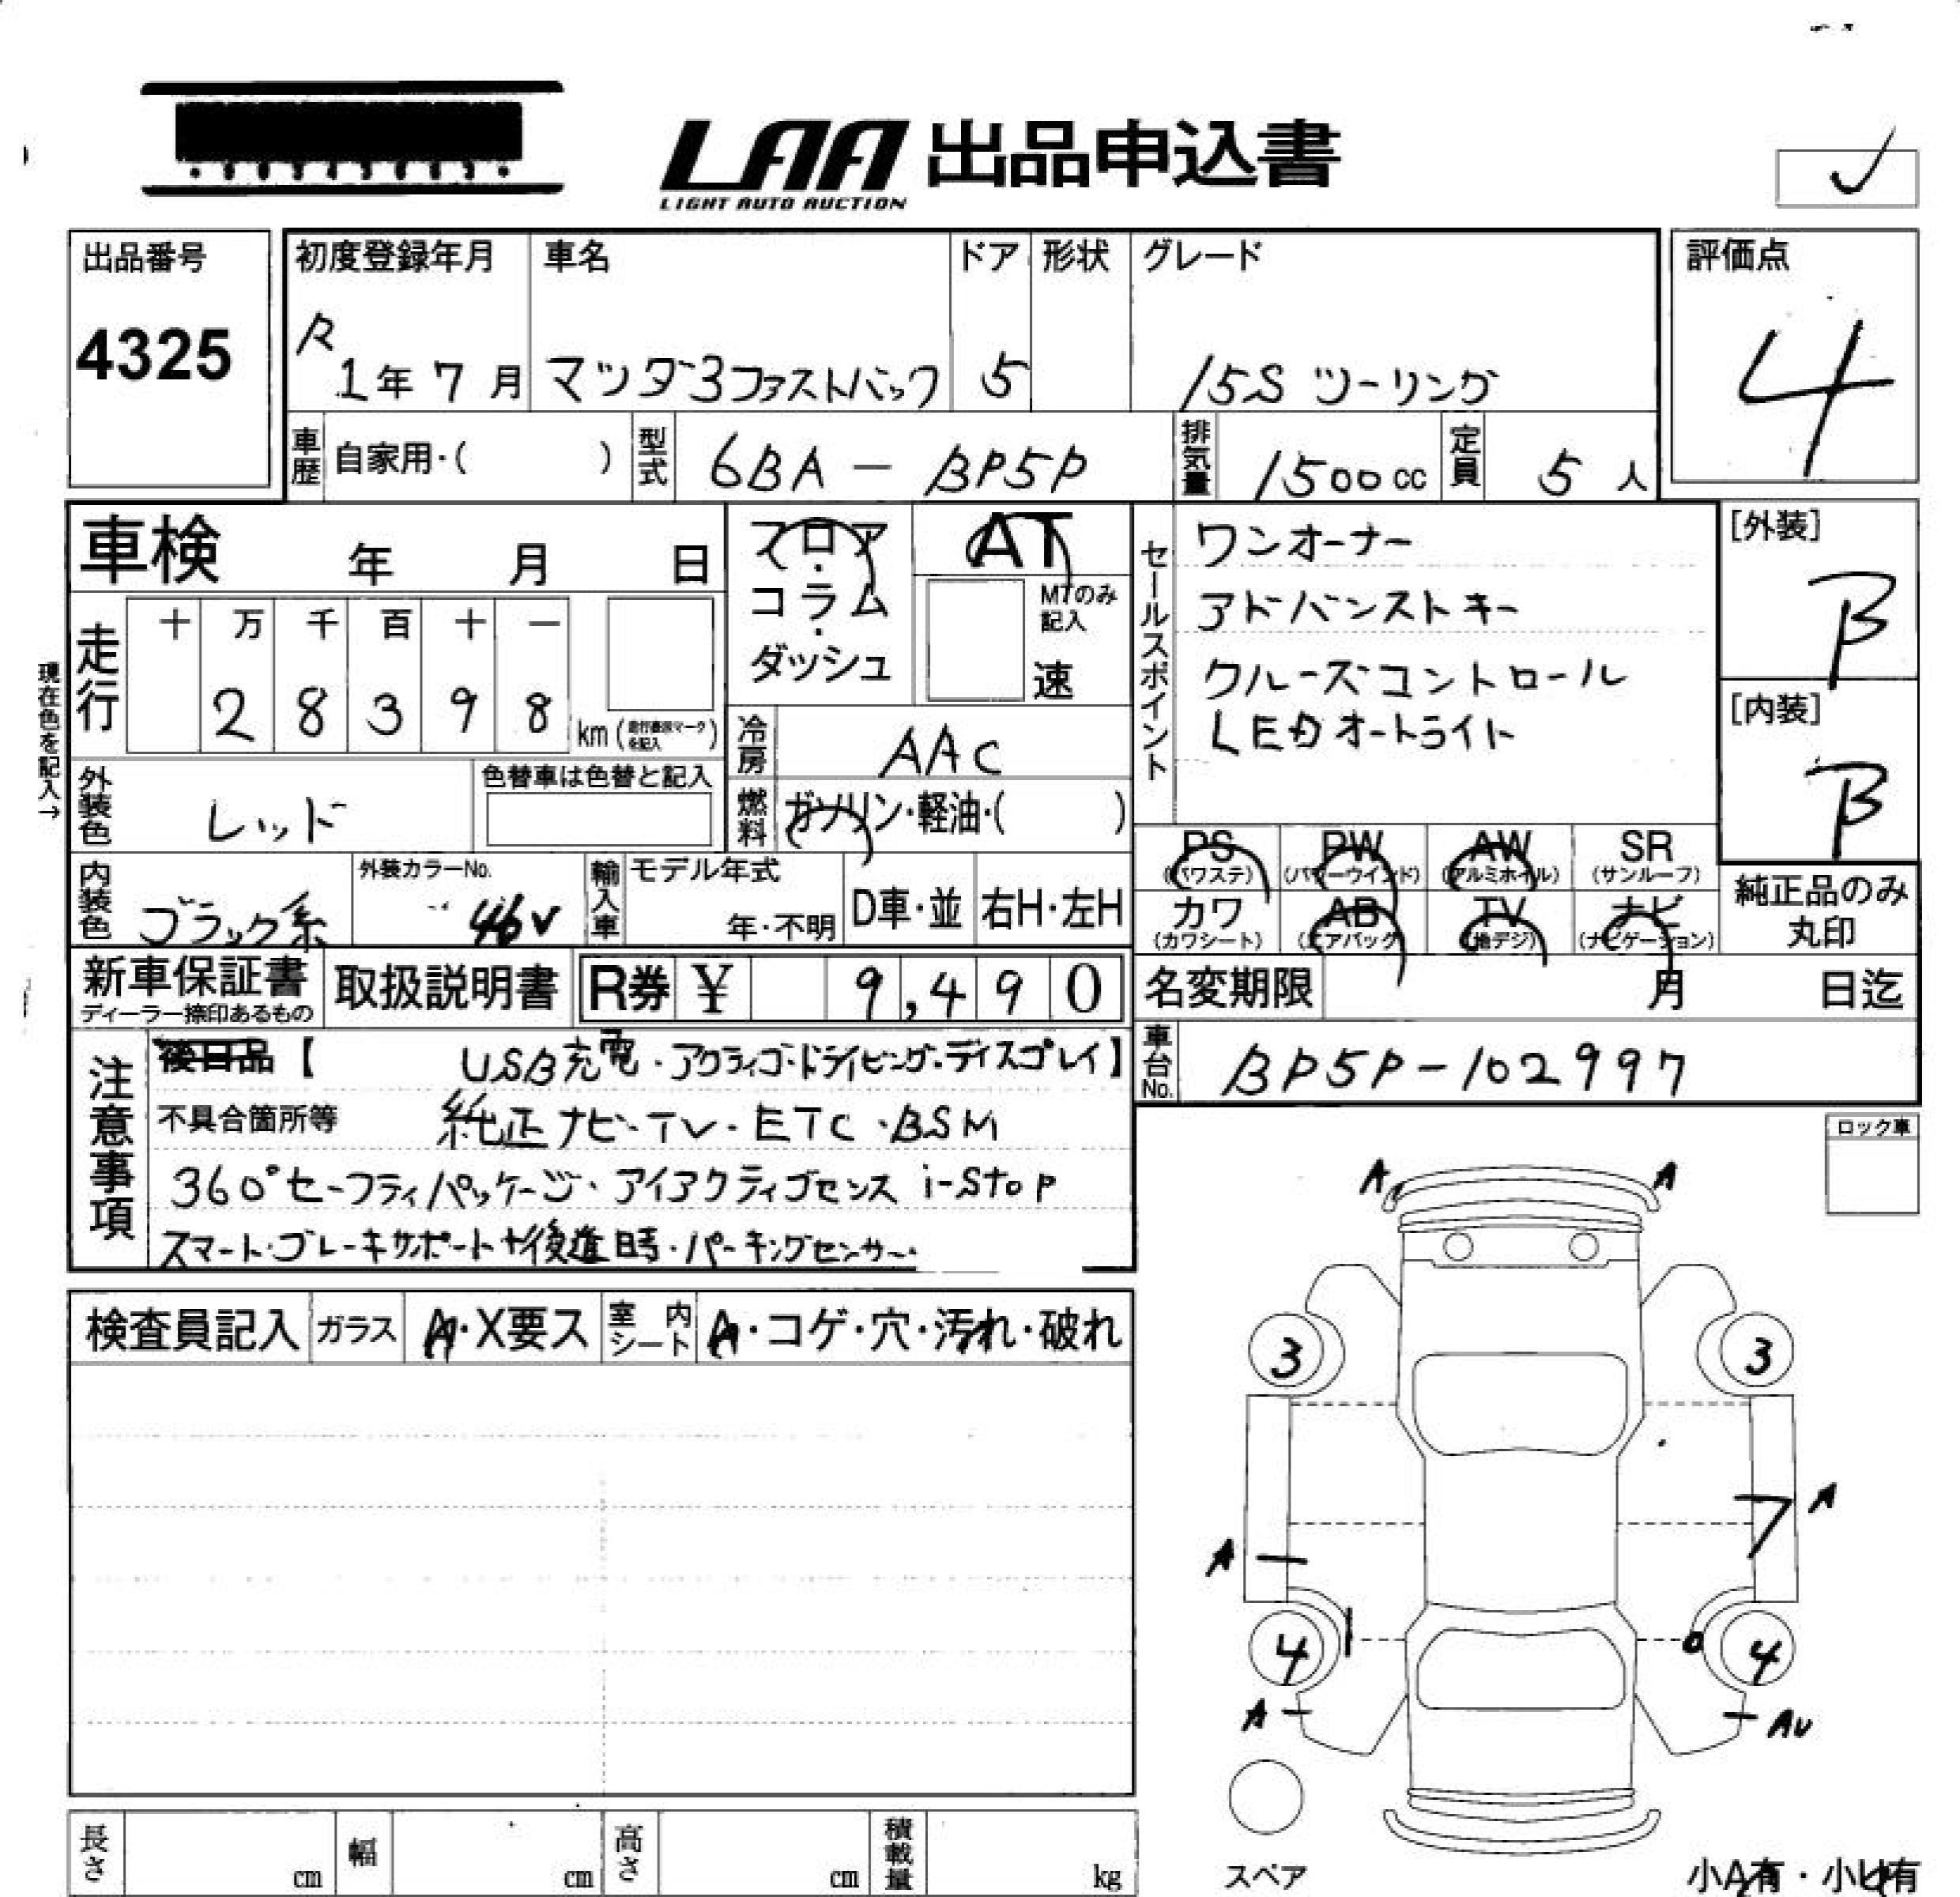 LAA 出品申込書
LIGHT AUTO AUCTION
出品番号
4325
初度登録年月
R 1年 7月
車名
マツダ3ファストバック
ドア
5
形状
グレード
15S ツーリング
評価点
4
車歴 自家用・( )
型式 6BA - BP5P
排気量 1500cc
定員 5人
車検 年 月 日
フロア・コラム・ダッシュ
AT
MTのみ記入
速
セールスポイント
ワンオーナー
アドバンストキー
クルーズコントロール
LEDオートライト
[外装]
B
[内装]
B
現在色を記入→
走行
十 万 千 百 十 一
2 8 3 9 8 km
冷房 AAC
燃料 ガソリン・軽油・( )
外装色 レッド
色替車は色替と記入
内装色 ブラック系
外装カラーNo. 46V
輸入車
モデル年式
年・不明
D車・並
右H・左H
PS (パワステ)
PW (パワーウインド)
AW (アルミホイル)
SR (サンルーフ)
カワ (カワシート)
AB (エアバッグ)
TV (地デジ)
ナビ (ナビゲーション)
純正品のみ丸印
新車保証書
ディーラー捺印あるもの
取扱説明書
R券 ¥ 9,490
名変期限 月 日迄
車台No. BP5P-102997
注意事項
後日品【 USB充電・アクティブ・ドライビング・ディスプレイ】
不具合箇所等 純正ナビ・TV・ETC・BSM
360°セーフティパッケージ・アイアクティブセンス i-stop
スマート・ブレーキサポート+後進時・パーキングセンサー
ロック車
検査員記入
ガラス A・X要ス
室内シート A・コゲ・穴・汚れ・破れ
A A
3 3
A
A
4 4
A AU
スペア
長さ cm
幅 cm
高さ cm
積載量 kg
小A有・小U有